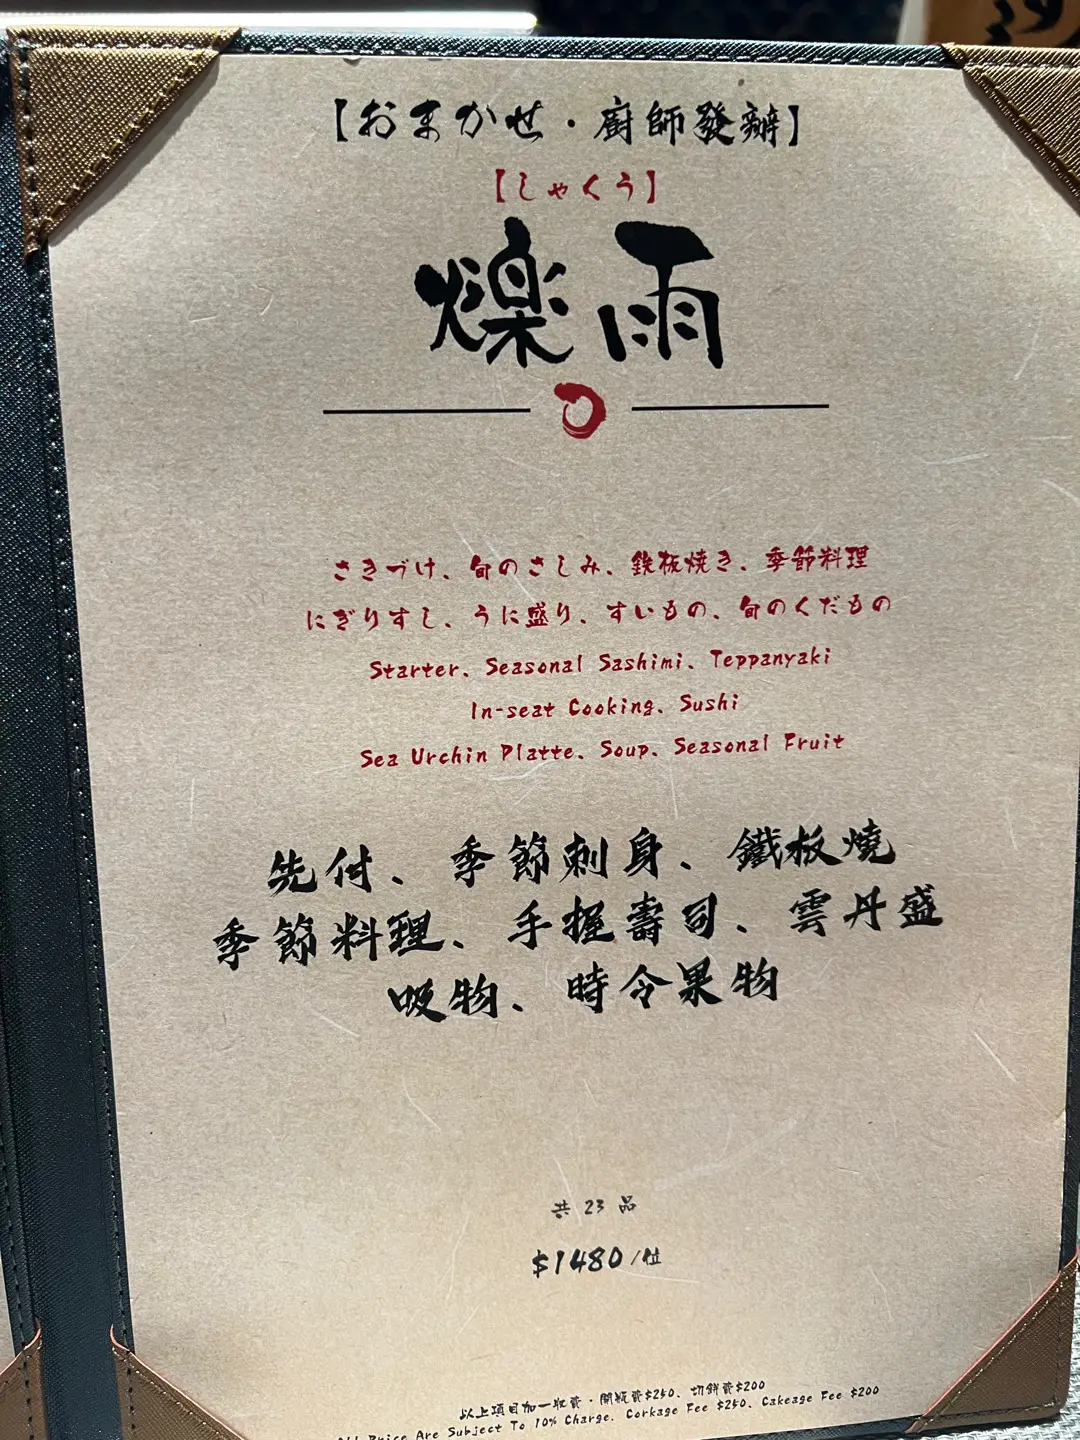 【おまかせ・廚師發辦】
【しゃくう】
爍雨
さきづけ、旬のさしみ、鉄板焼き、季節料理
にぎりすし、うに盛り、すいもの、旬のくだもの
Starter、Seasonal Sashimi、Teppanyaki
In-seat Cooking、Sushi
Sea Urchin Platte、Soup、Seasonal Fruit
先付、季節刺身、鐵板燒
季節料理、手握壽司、雲丹盛
吸物、時令果物
共 23 品
$1480/位
以上項目加一收費・開瓶費$250、切餅費$200
All Price Are Subject To 10% Charge. Corkage Fee $250、Cakeage Fee $200